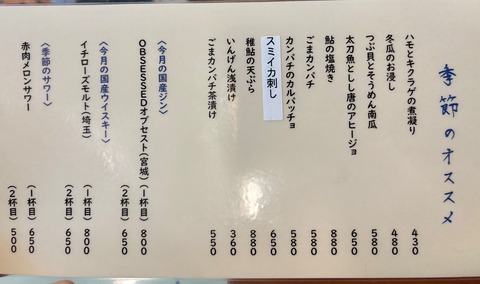 季節のオススメ
ハモとキクラゲの煮凝り 430
冬瓜のお浸し 480
つぶ貝とそうめん南瓜 580
太刀魚としし唐のアヒージョ 650
鮎の塩焼き 880
ごまカンパチ 580
カンパチのカルパッチョ 580
スミイカ刺し 650
稚鮎の天ぷら 880
いんげん浅漬け 360
ごまカンパチ茶漬け 550
〈今月の国産ジン〉
OBSESSEDオブセスト(宮城) (1杯目) 800
(2杯目) 650
〈今月の国産ウイスキー〉
イチローズモルト(埼玉) (1杯目) 800
(2杯目) 650
〈季節のサワー〉
赤肉メロンサワー (1杯目) 650
(2杯目) 500